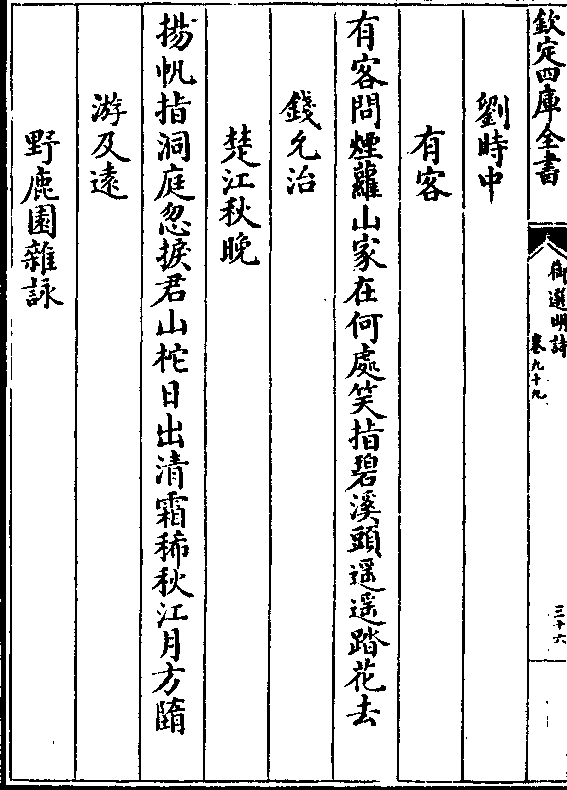 欽定四庫全書
御選明詩
卷九十九
三十六
劉時中
有客
有客問煙蘿山家在何處笑指碧溪頭遥遥踏花去
錢允治
楚江秋晚
揚帆指洞庭忽捩君山柁日出清霜稀秋江月方墮
游及遠
野鹿園雜詠